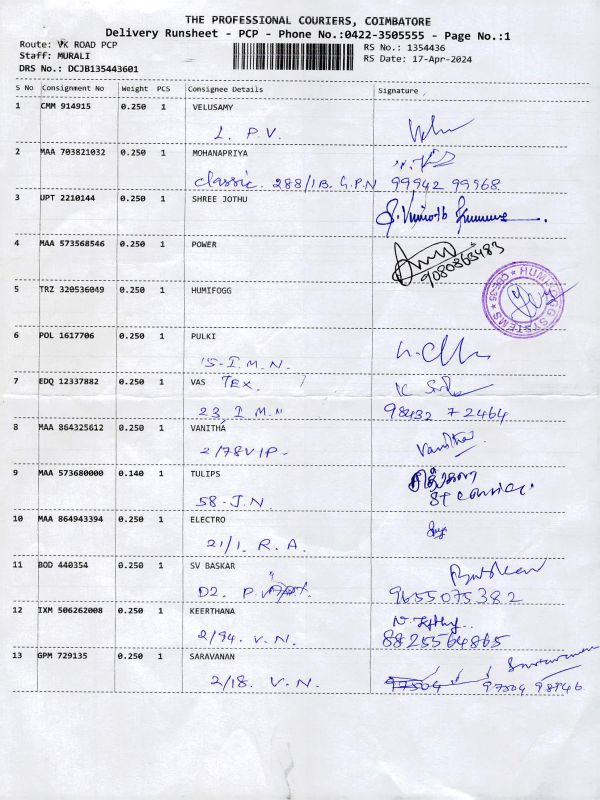 THE PROFESSIONAL COURIERS, COIMBATORE
Delivery Runsheet - PCP - Phone No.:0422-3505555 - Page No.:1
Route: VK ROAD PCP
RS No.: 1354436
Staff: MURALI
RS Date: 17-Apr-2024
DRS No.: DCJB135443601
S No Consignment No Weight PCS Consignee Details Signature
1 CMM 914915 0.250 1 VELUSAMY
L. P.V.
2 MAA 703821032 0.250 1 MOHANAPRIYA
Classic. 288/1B. G.P.N 99942 99968
3 UPT 2210144 0.250 1 SHREE JOTHU
4 MAA 573568546 0.250 1 POWER
9080863483
5 TRZ 320536049 0.250 1 HUMIFOGG
6 POL 1617706 0.250 1 PULKI
15-I.M.N.
7 EDQ 12337882 0.250 1 VAS TEX.
23, I M.N 98432 72464
8 MAA 864325612 0.250 1 VANITHA
2/78 V I P- Vanitha
9 MAA 573680000 0.140 1 TULIPS
58-J.N.
10 MAA 864943394 0.250 1 ELECTRO
21/1. R.A.
11 BOD 440354 0.250 1 SV BASKAR
D2. 9655075382
12 IXM 506262008 0.250 1 KEERTHANA
2/94. V.N. 8825564865
13 GPM 729135 0.250 1 SARAVANAN
2/18. V.N. 97504 97504 98946